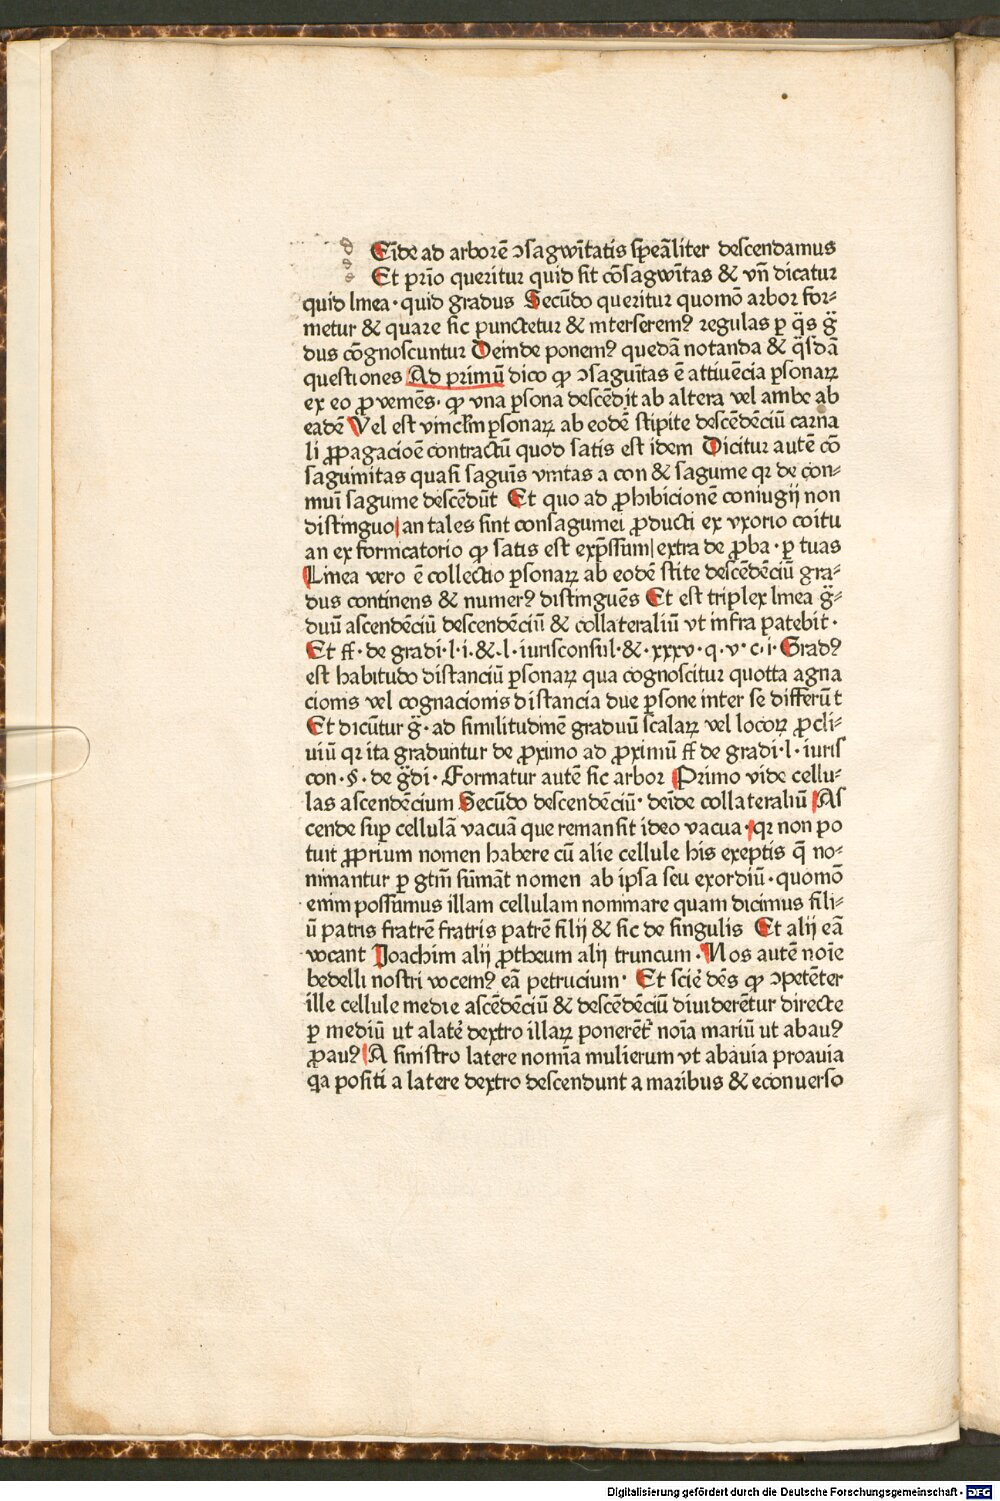 Eīde ad arborē ɔsagwītatis speāliter descendamus
Et prīo queritur quid sit cōsagwītas & vn̄ dicatur
quid linea · quid gradus Secūdo queritur quomō arbor for⸗
metur & quare sic punctetur & interseremꝰ regulas ꝑ q̄s g̈
dus cōgnoscuntur Deinde ponemꝰ quedā notanda & q̄sdā
questiones Ad primū dico ꝙ ɔsaguītas ē attiuēcia ꝑsonaꝝ
ex eo ꝓveniēs · ꝙ vna ꝑsona descēdit ab altera vel ambe ab
eadē Vel est vincl̄m ꝑsonaꝝ ab eodē stipite descēdēciū carna
li ꝓpagacioē contractū quod satis est idem Dicitur autē cō
saguinitas quasi saguīs vnitas a con & saguine qꝛ de con⸗
muī saguine descēdūt Et quo ad ꝓhibicionē coniugij non
distinguo an tales sint consaguinei ꝓducti ex vxorio coitu
an ex fornicatorio ꝙ satis est exp̄ssum extra de ꝓba · ꝑ tuas
Linea vero ē collectio ꝑsonaꝝ ab eodē stite descēdēciū gra⸗
dus continens & numerꝰ distinguēs Et est triplex linea g̈⸗
duū ascendēciū descendēciū & collateraliū vt infra patebit ·
Et ff · de gradi · l · i · & · l · iurisconsul · & · xxxv · q · v · c · i · Gradꝰ
est habitudo distanciū ꝑsonaꝝ qua cognoscitur quotta agna
cionis vel cognacionis distancia due ꝑsone inter se differūt
Et dicūtur g̈ · ad similitudinē graduū scalaꝝ vel locoꝝ ꝓcli⸗
uiū qꝛ ita graduntur de ꝓximo ad ꝓximū ff de gradi · l · iuris
con · §. de g̈di · Formatur autē sic arbor Primo vide cellu⸗
las ascendēcium Secūdo descendēciū · deīde collateraliū As
cende suꝑ cellulā vacuā que remansit ideo vacua · qꝛ non po
tuit ꝓprium nomen habere cū alie cellule his exeptis q̄ no⸗
minantur ꝑ gtm̄ sūmāt nomen ab ipsa seu exordiū · quomō
enim possumus illam cellulam nominare quam dicimus fili⸗
ū patris fratrē fratris patrē filij & sic de singulis Et alij eā
vocant Joachim alij ꝓtheum alij truncum · Nos autē noīe
bedelli nostri vocemꝰ eā petrucium · Et sciē dēs ꝙ ɔpetēter
ille cellule medie ascēdēciū & descēdēciū diuiderētur directe
ꝑ mediū ut alatē dextro illaꝝ ponerēt̄ noīa mariū ut abauꝰ
ꝓauꝰ A sinistro latere nomīa mulierum vt abauia proauia
qa positi a latere dextro descendunt a maribus & econuerso
Digitalisierung gefördert durch die Deutsche Forschungsgemeinschaft - DFG